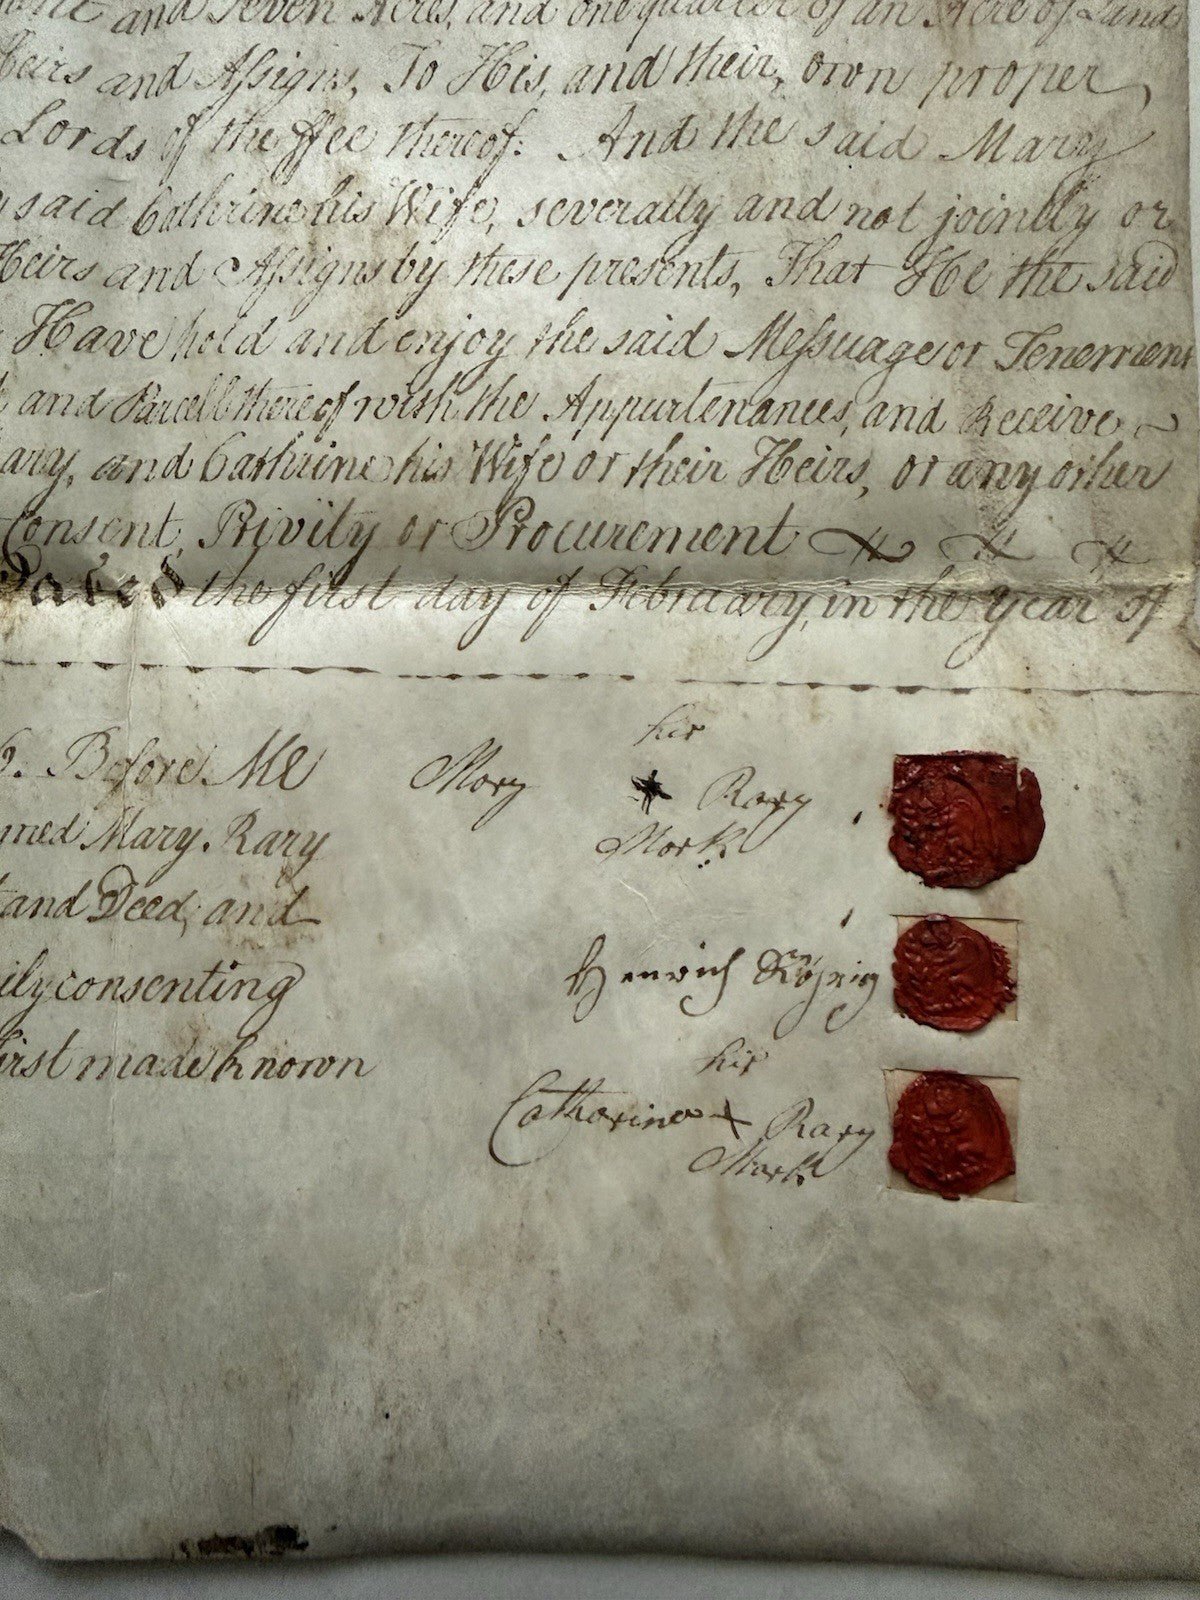 and Seven Acres, and one quarter of an Acre of Land
Heirs and Assigns, To His, and their, own proper
Lords of the ffee thereof: And the said Mary
said Cathrine his Wife, severally and not joinlly or
Heirs and Assigns by these presents, That He the said
Have hold and enjoy the said Messuage or Tenement
and Parcell thereof with the Appurtenances, and Receive
ary, and Cathrine his Wife or their Heirs, or any other
Consent, Privity or Procurement
Dated the first day of February, in the year of
his
6. Before Me Mary Rary
med Mary. Rary Mark
and Deed, and
ily consenting Henrich Röhrig
his
irst made known Catharina + Rary
Mark